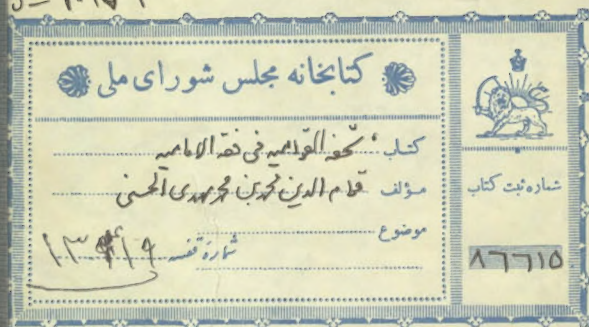 کتابخانه مجلس شورای ملی
کتاب تحفه القوامیه فی فقه الامامیه
مؤلف قوام الدین محمد بن محمد مهدی الحسنی
موضوع
شماره قفسه
شماره ثبت کتاب
۸۶۶۱۵